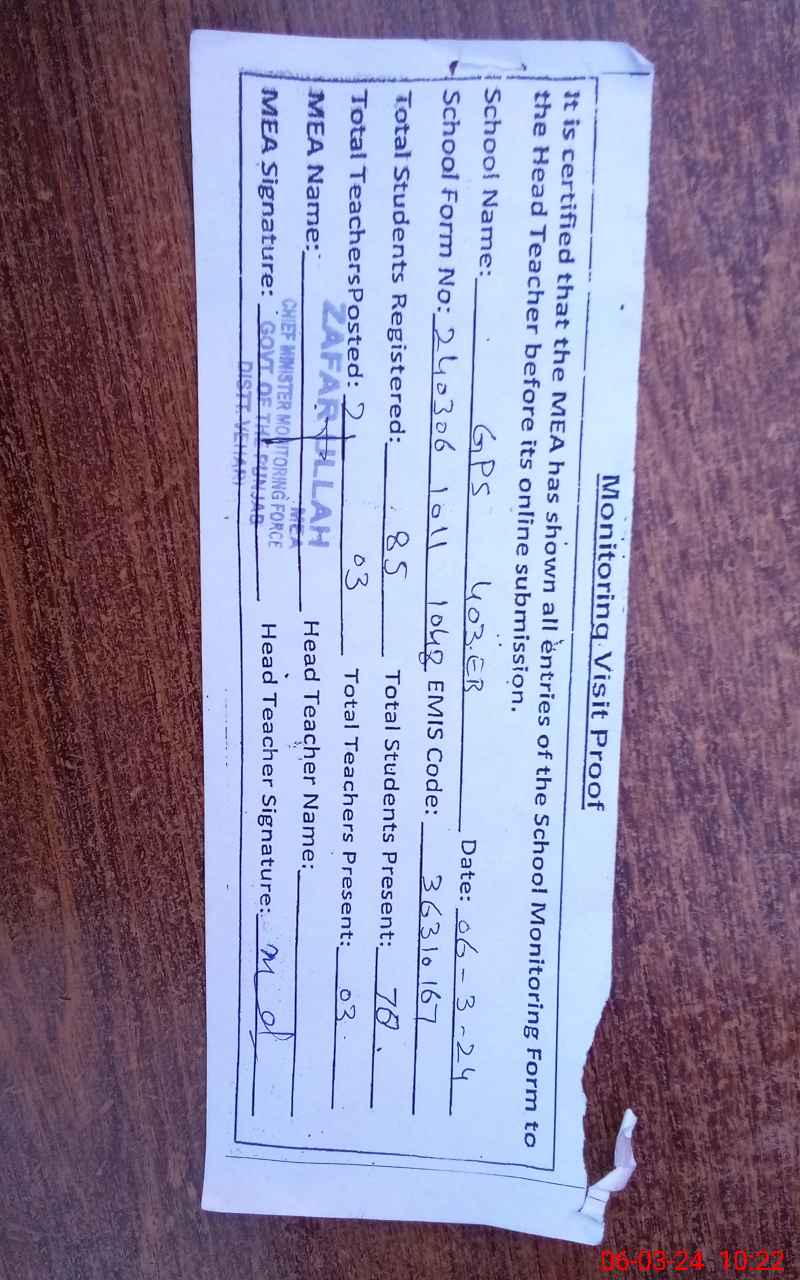 Monitoring Visit Proof
It is certified that the MEA has shown all entries of the School Monitoring Form to
the Head Teacher before its online submission.
School Name: GPS 403.EB Date: 06-3-24
School Form No: 240306 1011 1048 EMIS Code: 36310167
Total Students Registered: 85 Total Students Present:
Total TeachersPosted: 03 Total Teachers Present: 03
MEA Name: Head Teacher Name:
MEA Signature: Head Teacher Signature:
ZAFAR ULLAH
MEA
CHIEF MINISTER MONITORING FORCE
GOVT OF THE PUNJAB
DISTT. VEHARI
06-03-24 10:22